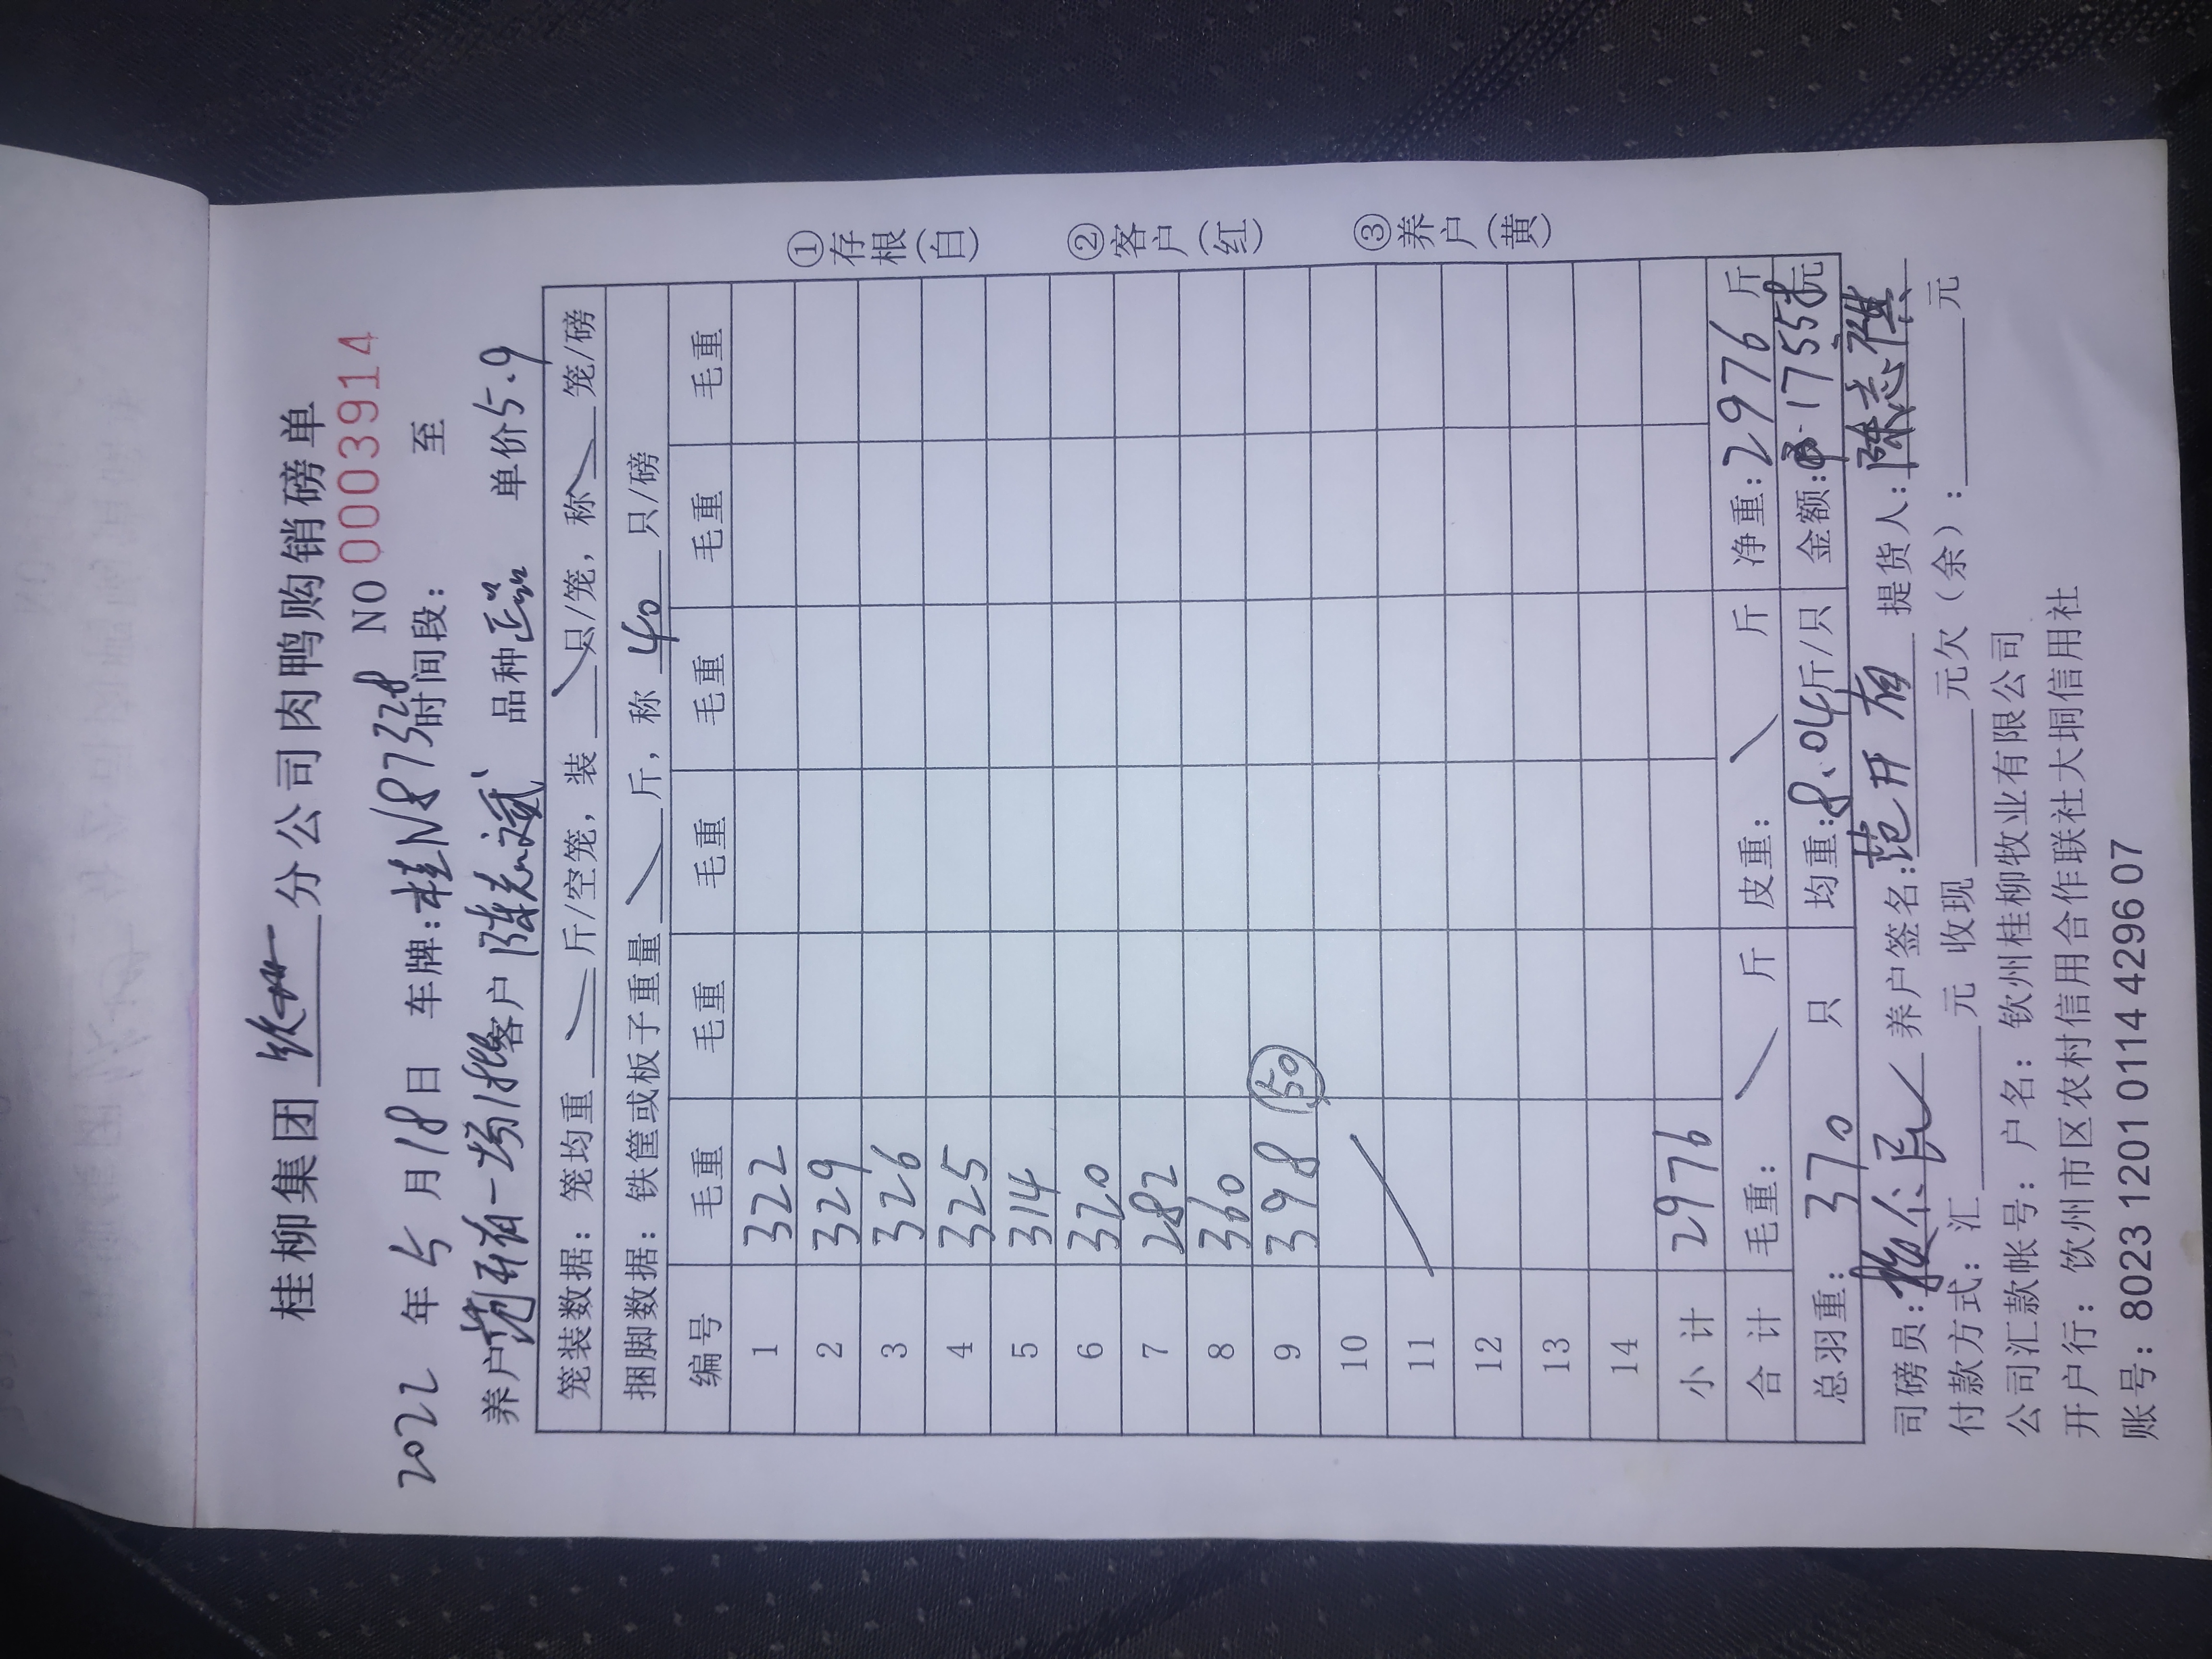 桂柳集团 钦州 分公司肉鸭购销磅单
NO 0003914
2022 年 5 月 18 日 车牌:桂N87328 时间段: 至
养户 范开有一场1批 客户 陈志斌 品种 正品 单价 5.9
笼装数据: 笼均重 斤/空笼, 装 只/笼, 称 笼/磅
捆脚数据: 铁筐或板子重量 斤, 称 40 只/磅
编号 毛重 毛重 毛重 毛重 毛重 毛重
1 322
2 329
3 326
4 325
5 314
6 320
7 282
8 360
9 398 (50)
10
11
12
13
14
小 计 2976
合 计 毛重: 斤 皮重: 斤 净重: 2976 斤
总羽重: 370 只 均重: 8.04 斤/只 金额: 17558 元
司磅员: 养户签名: 范开有 提货人: 陈志
付款方式: 汇 元 收现 元欠(余): 元
公司汇款帐号: 户名: 钦州桂柳牧业有限公司
开户行: 饮州市区农村信用合作联社大垌信用社
账号: 8023 1201 0114 4296 07
①存根(白) ②客户(红) ③养户(黄)